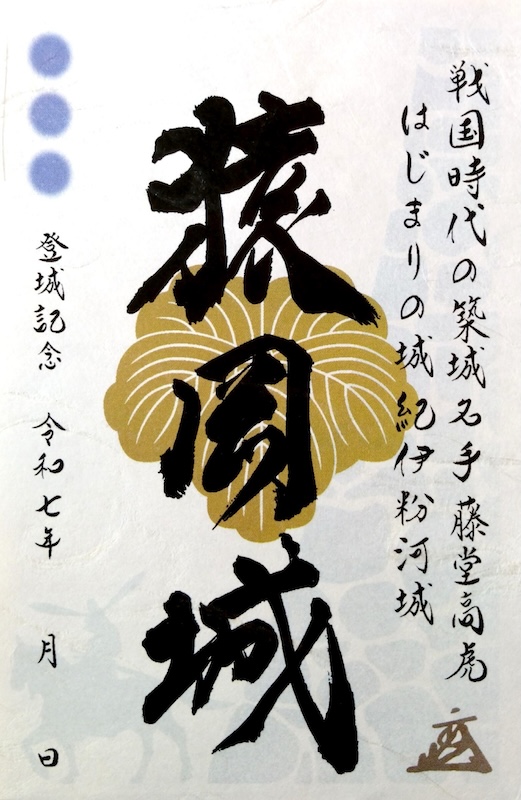 戦国時代の築城名手藤堂高虎
はじまりの城 紀伊粉河城
猿岡城
登城記念 令和七年 月 日